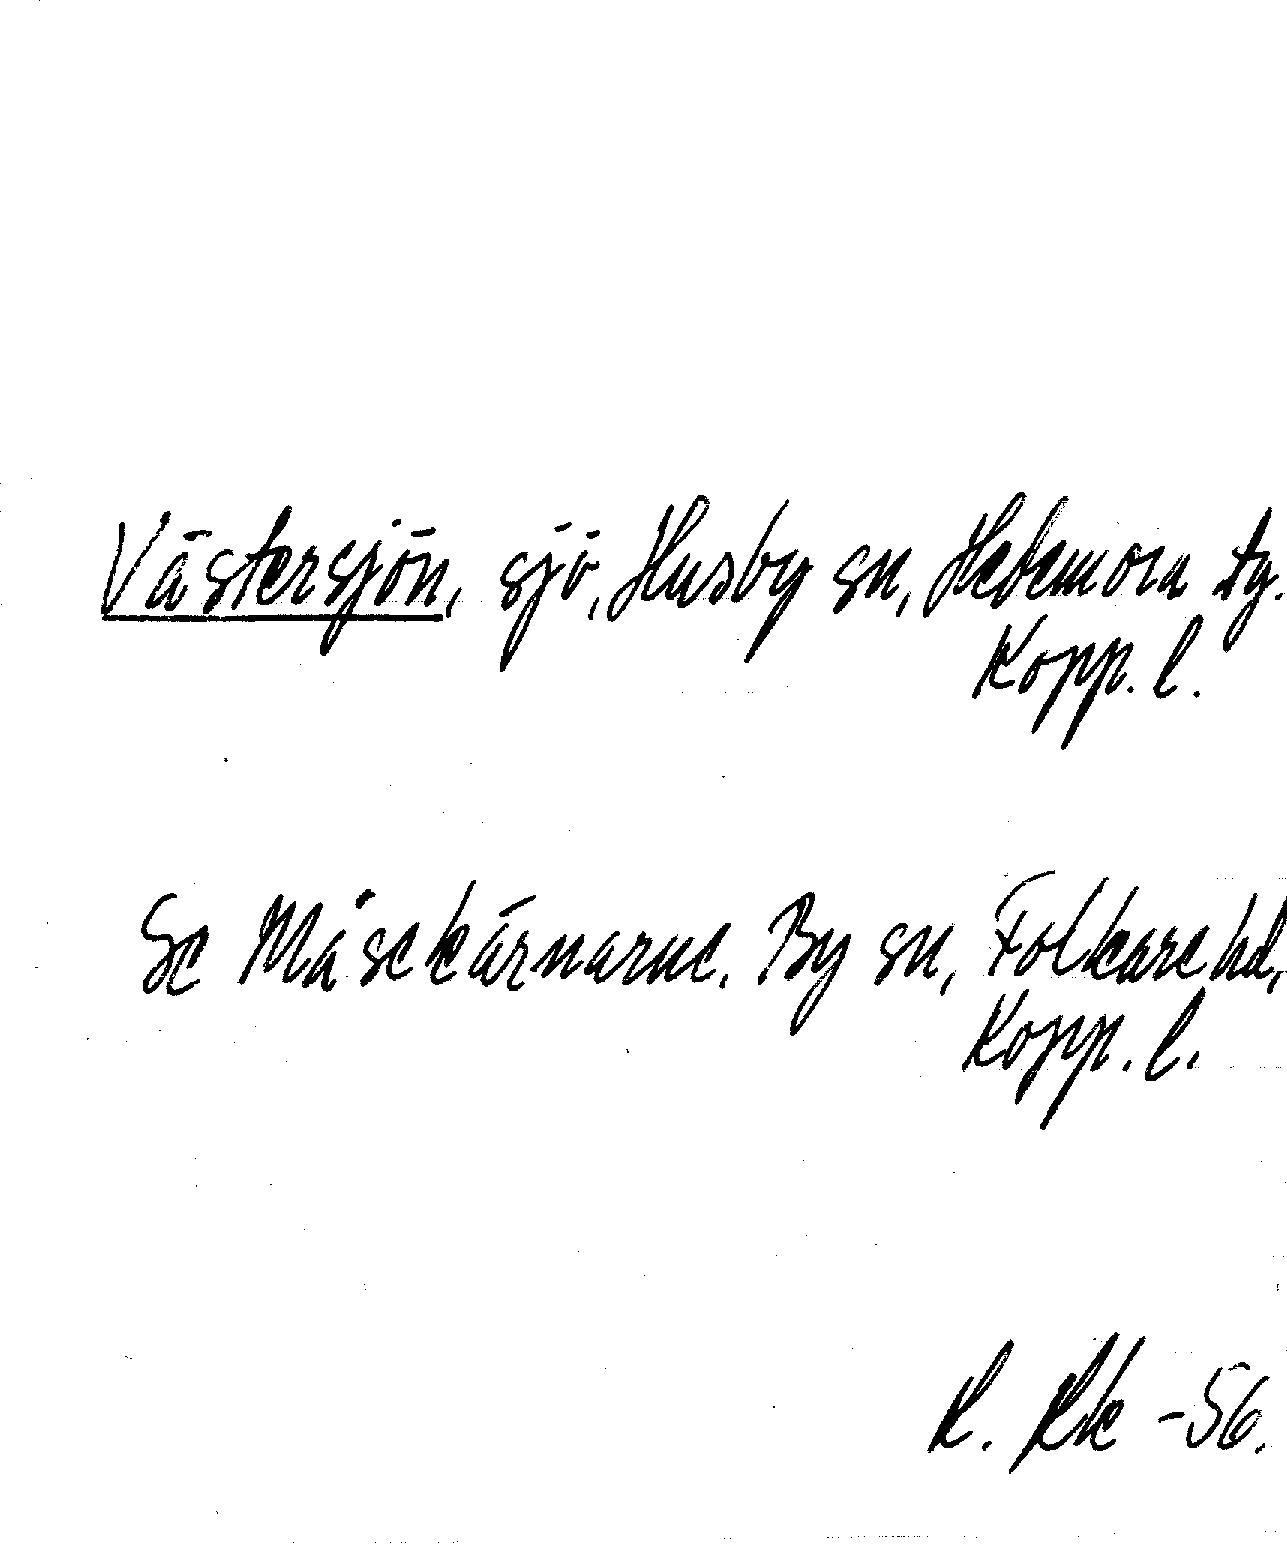 Västersjön, sjö, Husby sn, Hedemora tg.
Kopp. l.
Se Måsekärnarne. By sn, Folkare hd,
Kopp. l.
R. Rk -56.